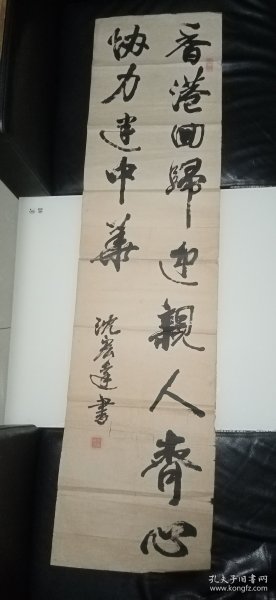 香港回歸迎親人齊心
協力建中華
沈宏達書
孔夫子旧书网
www.kongfz.com